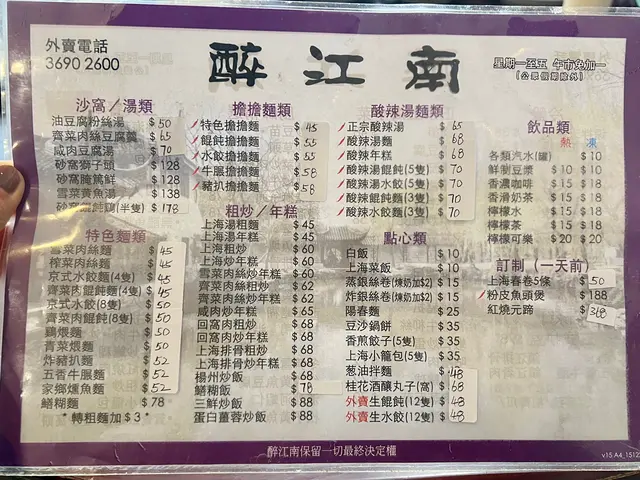 外賣電話
3690 2600
醉江南
星期一至五 午市免加一
(公眾假期除外)
沙窩／湯類
油豆腐粉絲湯 $50
薺菜肉絲豆腐羹 $65
咸肉豆腐湯 $70
砂窩獅子頭 $128
砂窩腌篤鮮 $128
雪菜黃魚湯 $138
砂窩雲吞鷄(半隻) $178
特色麵類
雪菜肉絲麵 $45
榨菜肉絲麵 $45
京式水餃麵(4隻) $45
薺菜肉餛飩麵(4隻) $45
京式水餃(8隻) $50
薺菜肉餛飩(8隻) $50
鷄煨麵 $50
青菜煨麵 $50
炸豬扒麵 $52
五香牛𦟌麵 $52
家鄉燻魚麵 $52
鱔糊麵 $78
*轉粗麵加$3*
擔擔麵類
特色擔擔麵 $45
餛飩擔擔麵 $55
水餃擔擔麵 $55
牛𦟌擔擔麵 $58
豬扒擔擔麵 $58
粗炒／年糕
上海湯粗麵 $45
上海湯年糕 $45
上海粗炒 $60
上海炒年糕 $60
雪菜肉絲炒年糕 $60
薺菜肉絲粗炒 $62
薺菜肉絲炒年糕 $62
咸肉炒年糕 $65
回窩肉粗炒 $68
回窩肉炒年糕 $68
上海排骨粗炒 $68
上海排骨炒年糕 $68
楊州炒飯 $68
鱔糊飯 $78
三鮮炒飯 $88
蛋白薑蓉炒飯 $88
酸辣湯麵類
正宗酸辣湯 $65
酸辣湯麵 $68
酸辣年糕 $68
酸辣湯餛飩(5隻) $70
酸辣湯水餃(5隻) $70
酸辣餛飩麵(3隻) $70
酸辣水餃麵(3隻) $70
點心類
白飯 $10
上海菜飯 $10
蒸銀絲卷(煉奶加$2) $15
炸銀絲卷(煉奶加$2) $15
陽春麵 $25
豆沙鍋餅 $35
香煎餃子(5隻) $35
上海小籠包(5隻) $35
葱油拌麵 $48
桂花酒釀丸子(窩) $68
外賣生餛飩(12隻) $48
外賣生水餃(12隻) $48
飲品類
熱 凍
各類汽水(罐) $10
鮮製豆漿 $10 $10
香濃咖啡 $15 $18
香滑奶茶 $15 $18
檸檬水 $15 $18
檸檬茶 $15 $18
檸檬可樂 $20 $20
訂制（一天前）
上海春卷5條 $50
粉皮魚頭煲 $188
紅燒元蹄 $368
醉江南保留一切最終決定權